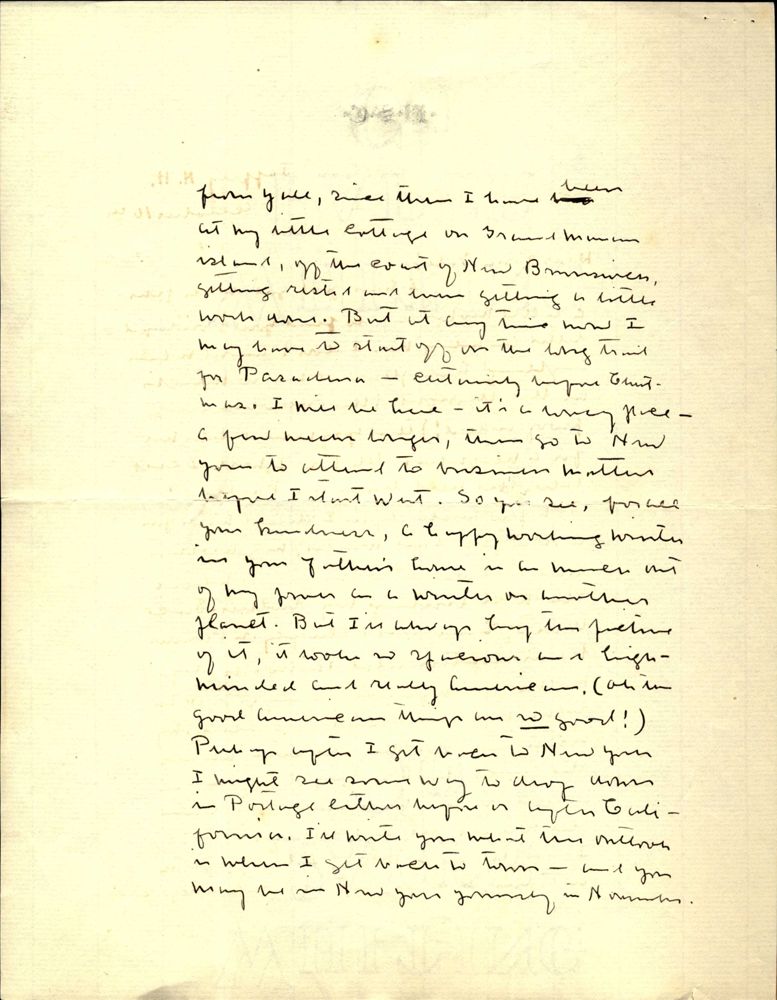 from you, since then I have been
at my little cottage on Grand Manan
island, off the coast of New Brunswick,
getting rested and even getting a little
work done. But at any time now I
may have to start off on the long trail
for Pasadena — certainly before Christ-
mas. I will be here — it's a lovely place —
a few weeks longer, then go to New
York to attend to business matters
before I start West. So you see, for all
your kindness, a happy working winter
in your father's home is as much out
of my power as a winter on another
planet. But I'll always keep the picture
of it, it looks so spacious and high-
minded and really American, (all the
good American things are so good!)
Perhaps after I get back to New York
I might see some way to drop down
in Portage either before or after Cali-
fornia. I'll write you what the outlook
is when I get back to town — and you
may be in New York yourself in November.